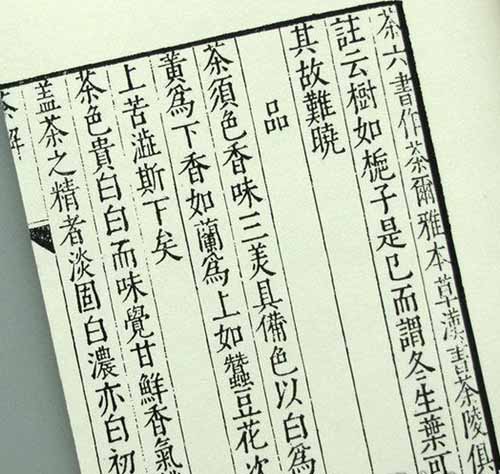 茶六書作荼爾雅本草漢書荼陵俱
註云樹如梔子是已而謂冬生葉可
其故難曉
品
茶須色香味三美具備色以白爲
黃爲下香如蘭爲上如蠶豆花次
上苦澁斯下矣
茶色貴白白而味覺甘鮮香氣
盖茶之精者淡固白濃亦白初
茶解